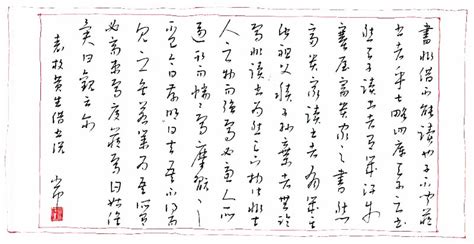 書非借不能讀也子不聞藏
書者乎七略四庫天子之書
然天子讀書者有幾汗牛
塞屋富貴家之書然
富貴家讀書者有幾其
他祖父積子孫棄者無論
焉非獨書為然天下物皆然非夫
人之物而強焉必慮人
逼取而惴惴焉摩玩之
不已曰今日存明日去吾不得而
見之矣若業為吾所有
必高束焉庋藏焉曰姑俟
異日觀云爾
袁枚黃生借書說